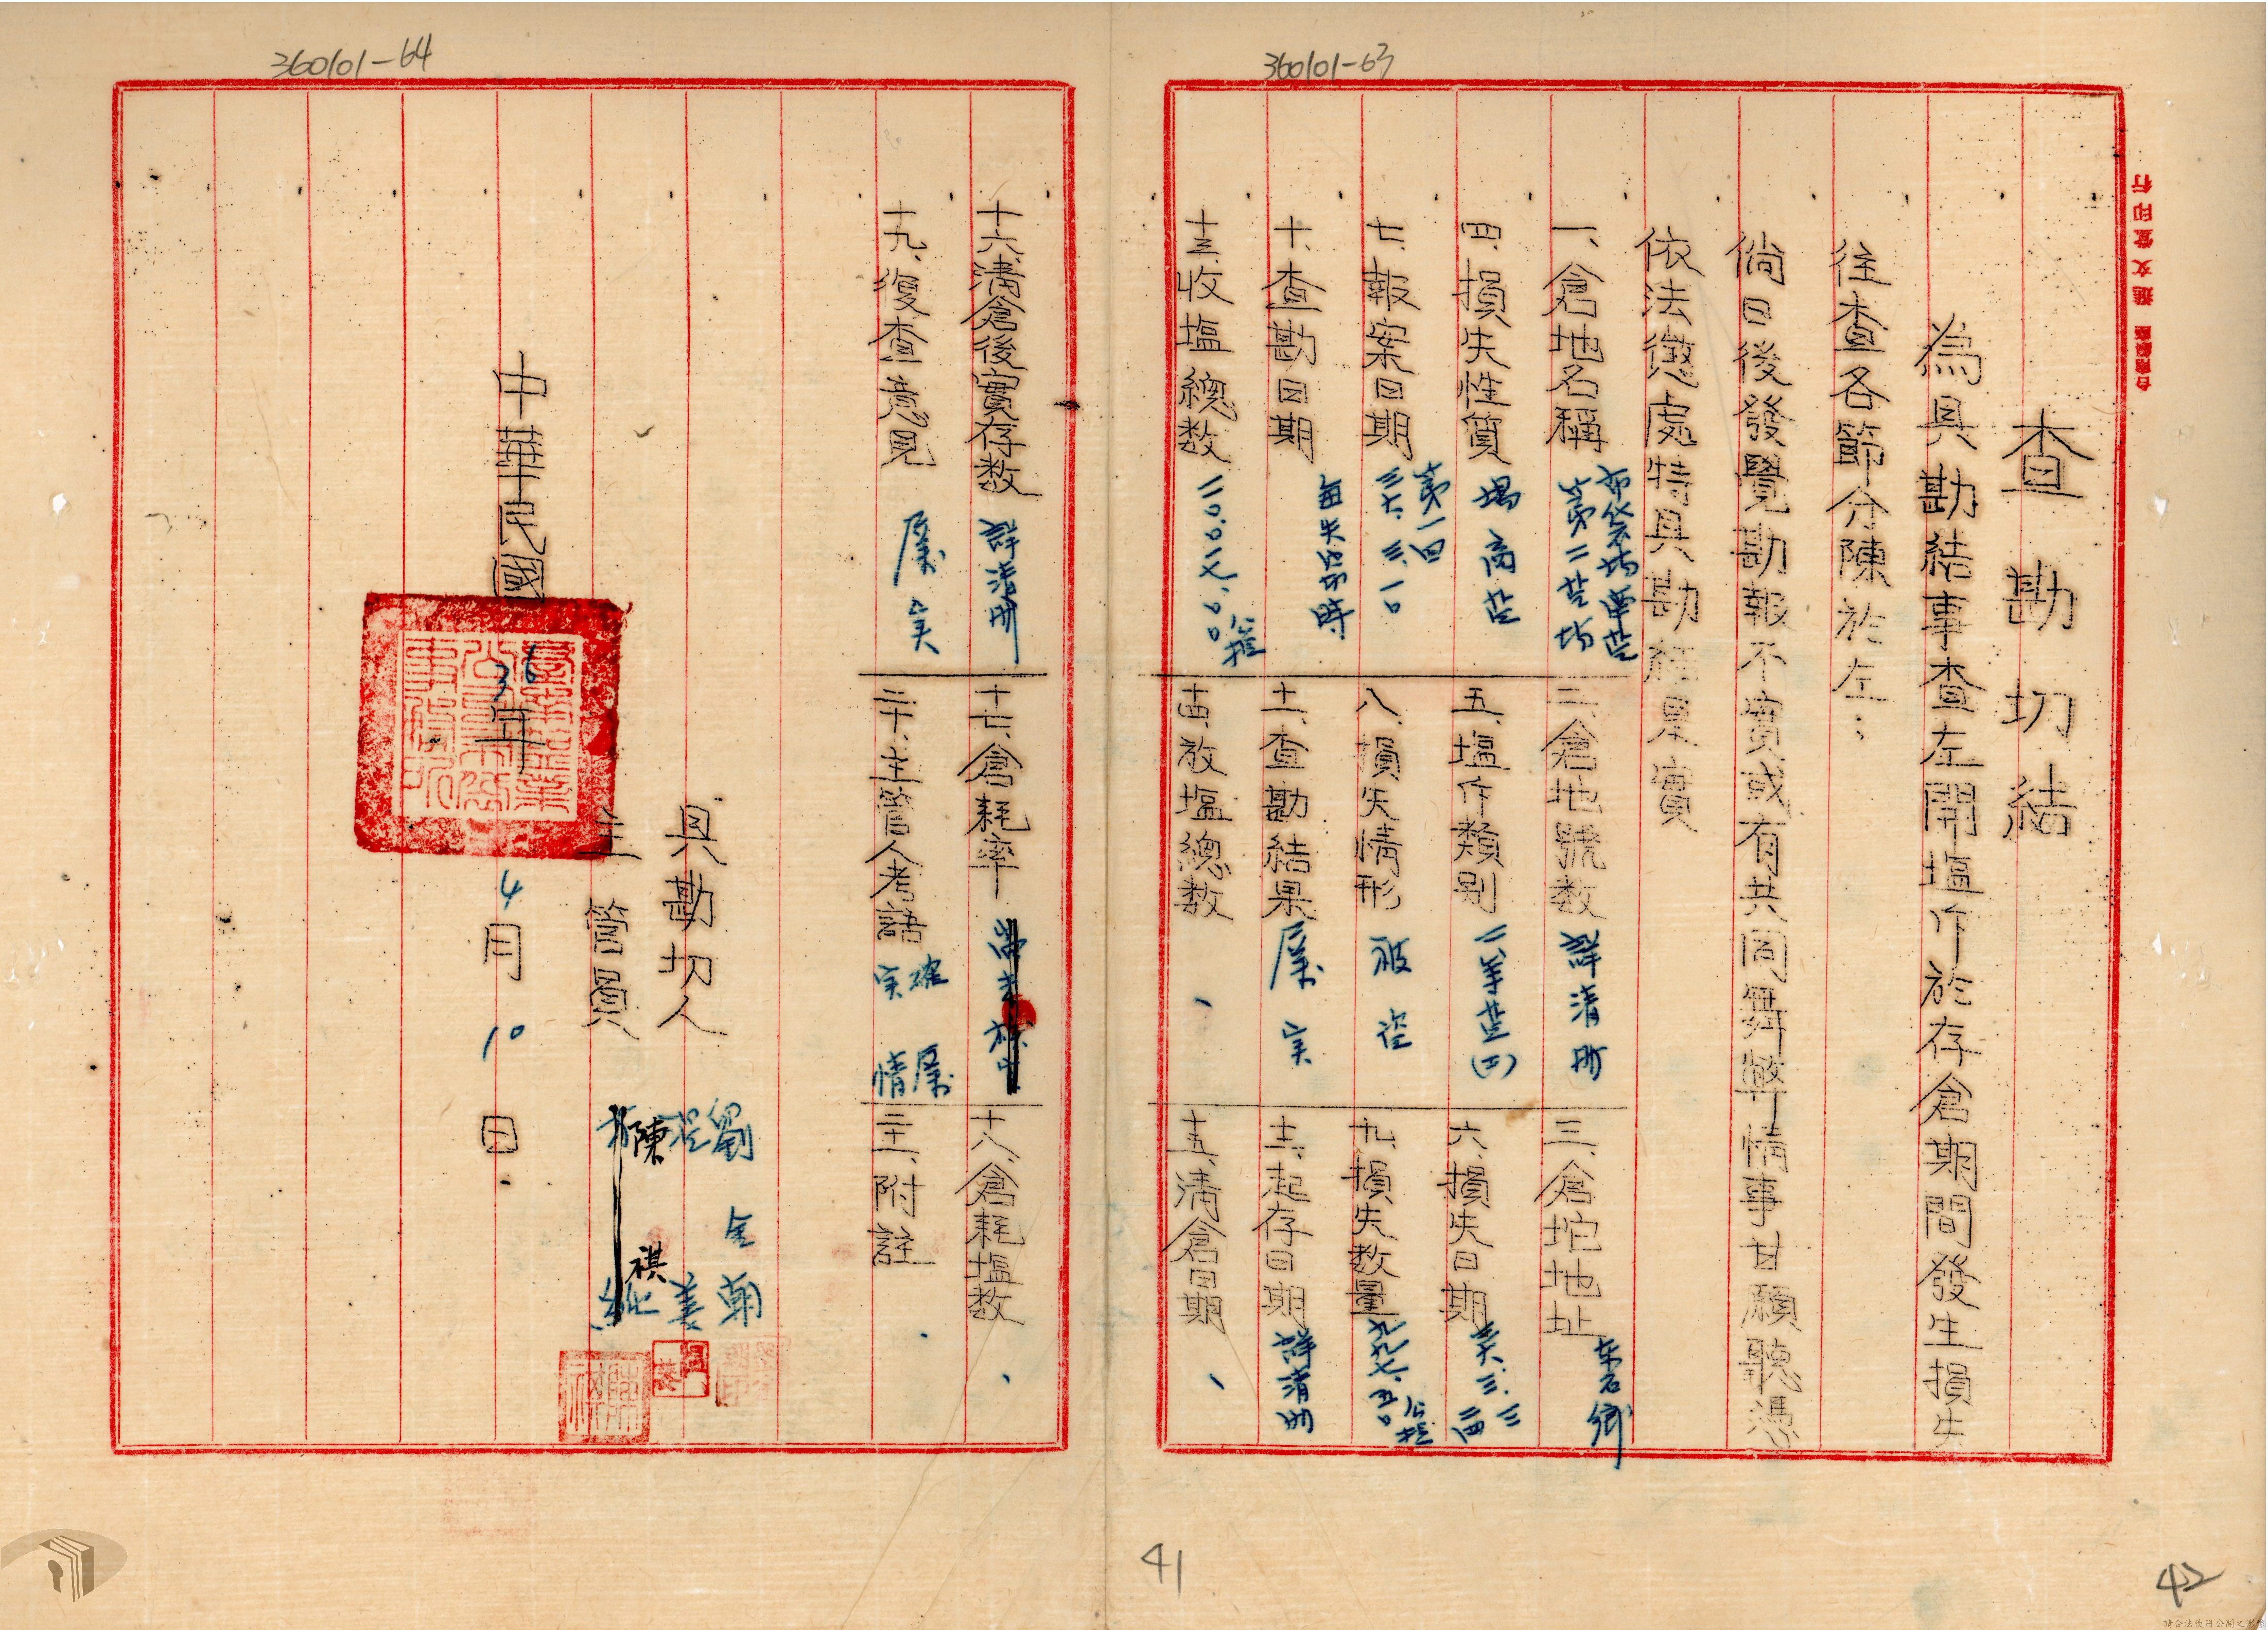 360101-63
查勘切結
為具勘結事查左開塩斤於存倉期間發生損失
往查各節分陳於左：
倘日後發覺勘報不實或有共同舞弊情事甘願聽憑
依法懲處特具勘結是實
一、倉地名稱 布袋場南芸第二芸場
二、倉地號数 詳清册
三、倉坨地址 东石鄉
四、損失性質 場商芸
五、塩斤類别 二等芸(四)
六、損失日期
七、報案日期 第一四 三六、三、一〇
八、損失情形 被盗
九、損失数量 九九七.五〇公担
十、查勘日期 每失竊時
十一、查勘結果 属实
十二、起存日期 詳清册
十三、收塩總数
十四、放塩總数 、
十五、清倉日期 、
360101-64
十六、清倉後實存数 詳清册
十七、倉耗率
十八、倉耗塩数 、
十九、復查意見 属实
二十、主管人考語 確实属情
二十一、附註 、
具勘切人 劉金朝
主管員 陳祺
中華民國36年4月10日
41
42
請合法使用公開之影像